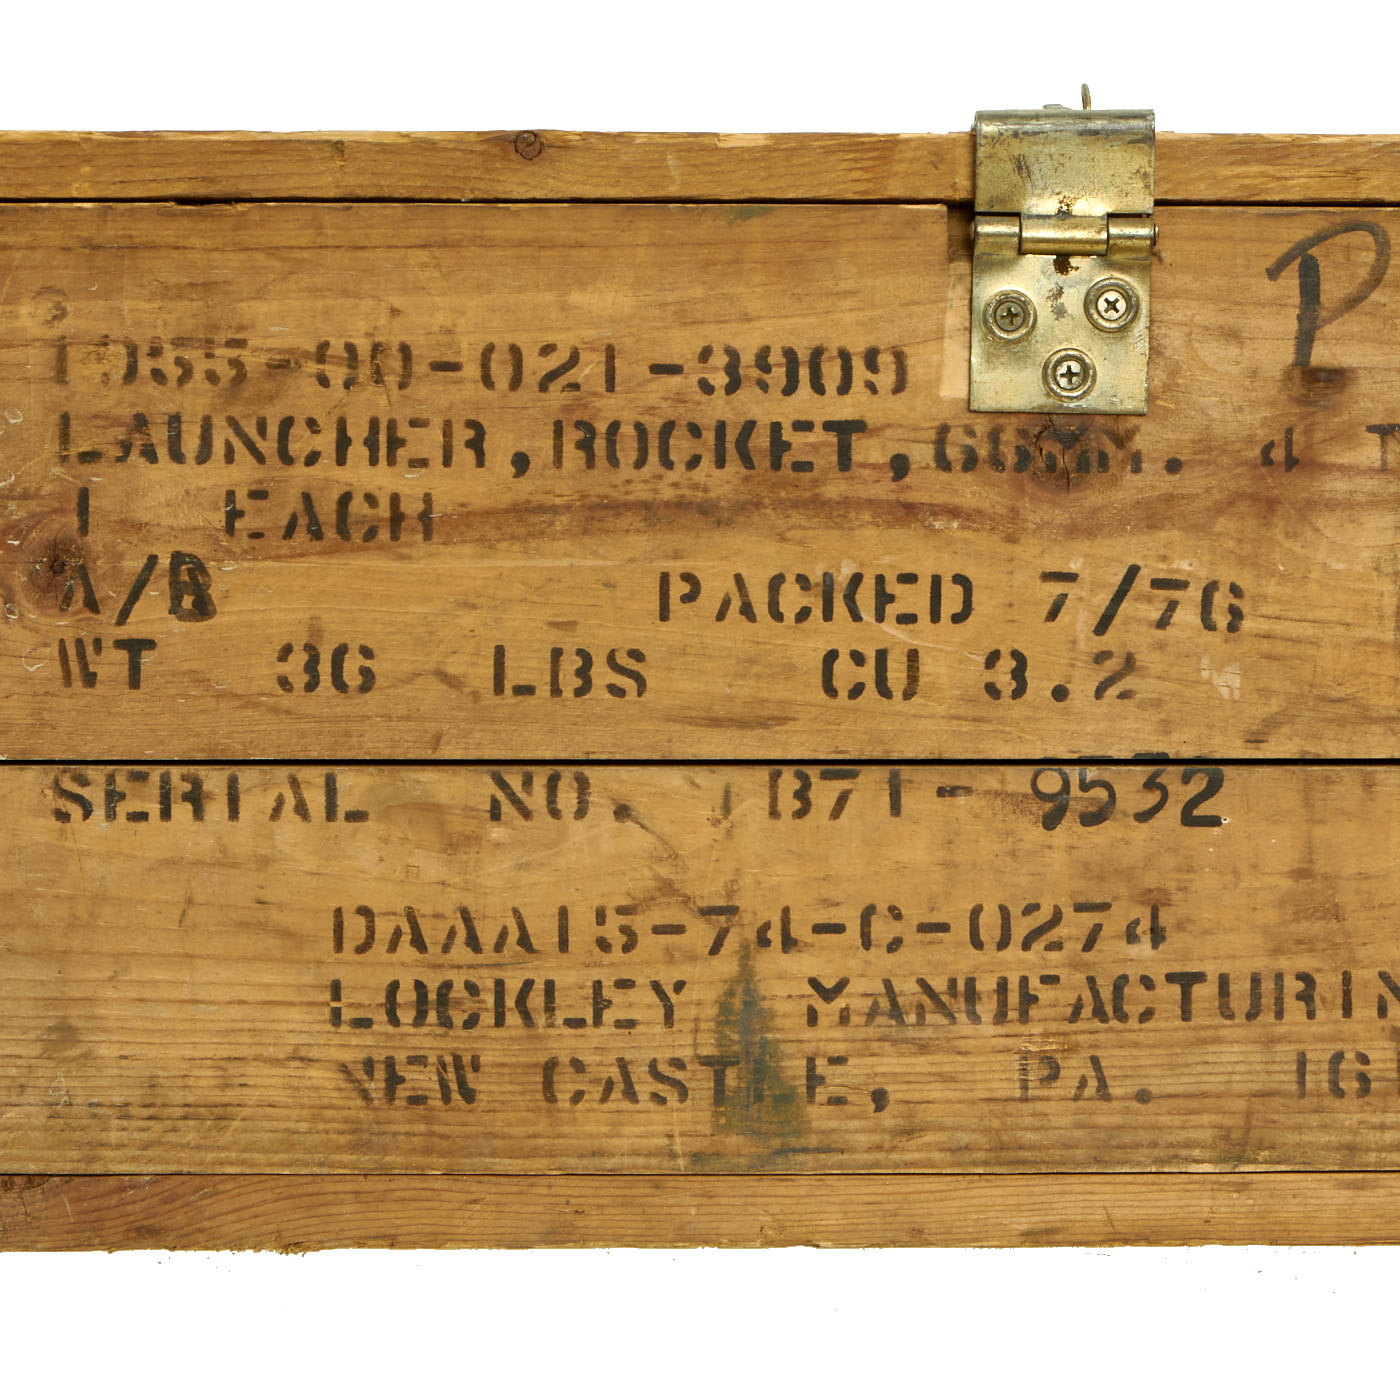 P
1055-00-021-3909
LAUNCHER, ROCKET, 66MM. 4 T
1 EACH
A/B PACKED 7/76
WT 36 LBS CU 3.2
SERIAL NO. B71-9532
DAAA15-74-C-0274
LOCKLEY MANUFACTURIN
NEW CASTLE, PA. 16